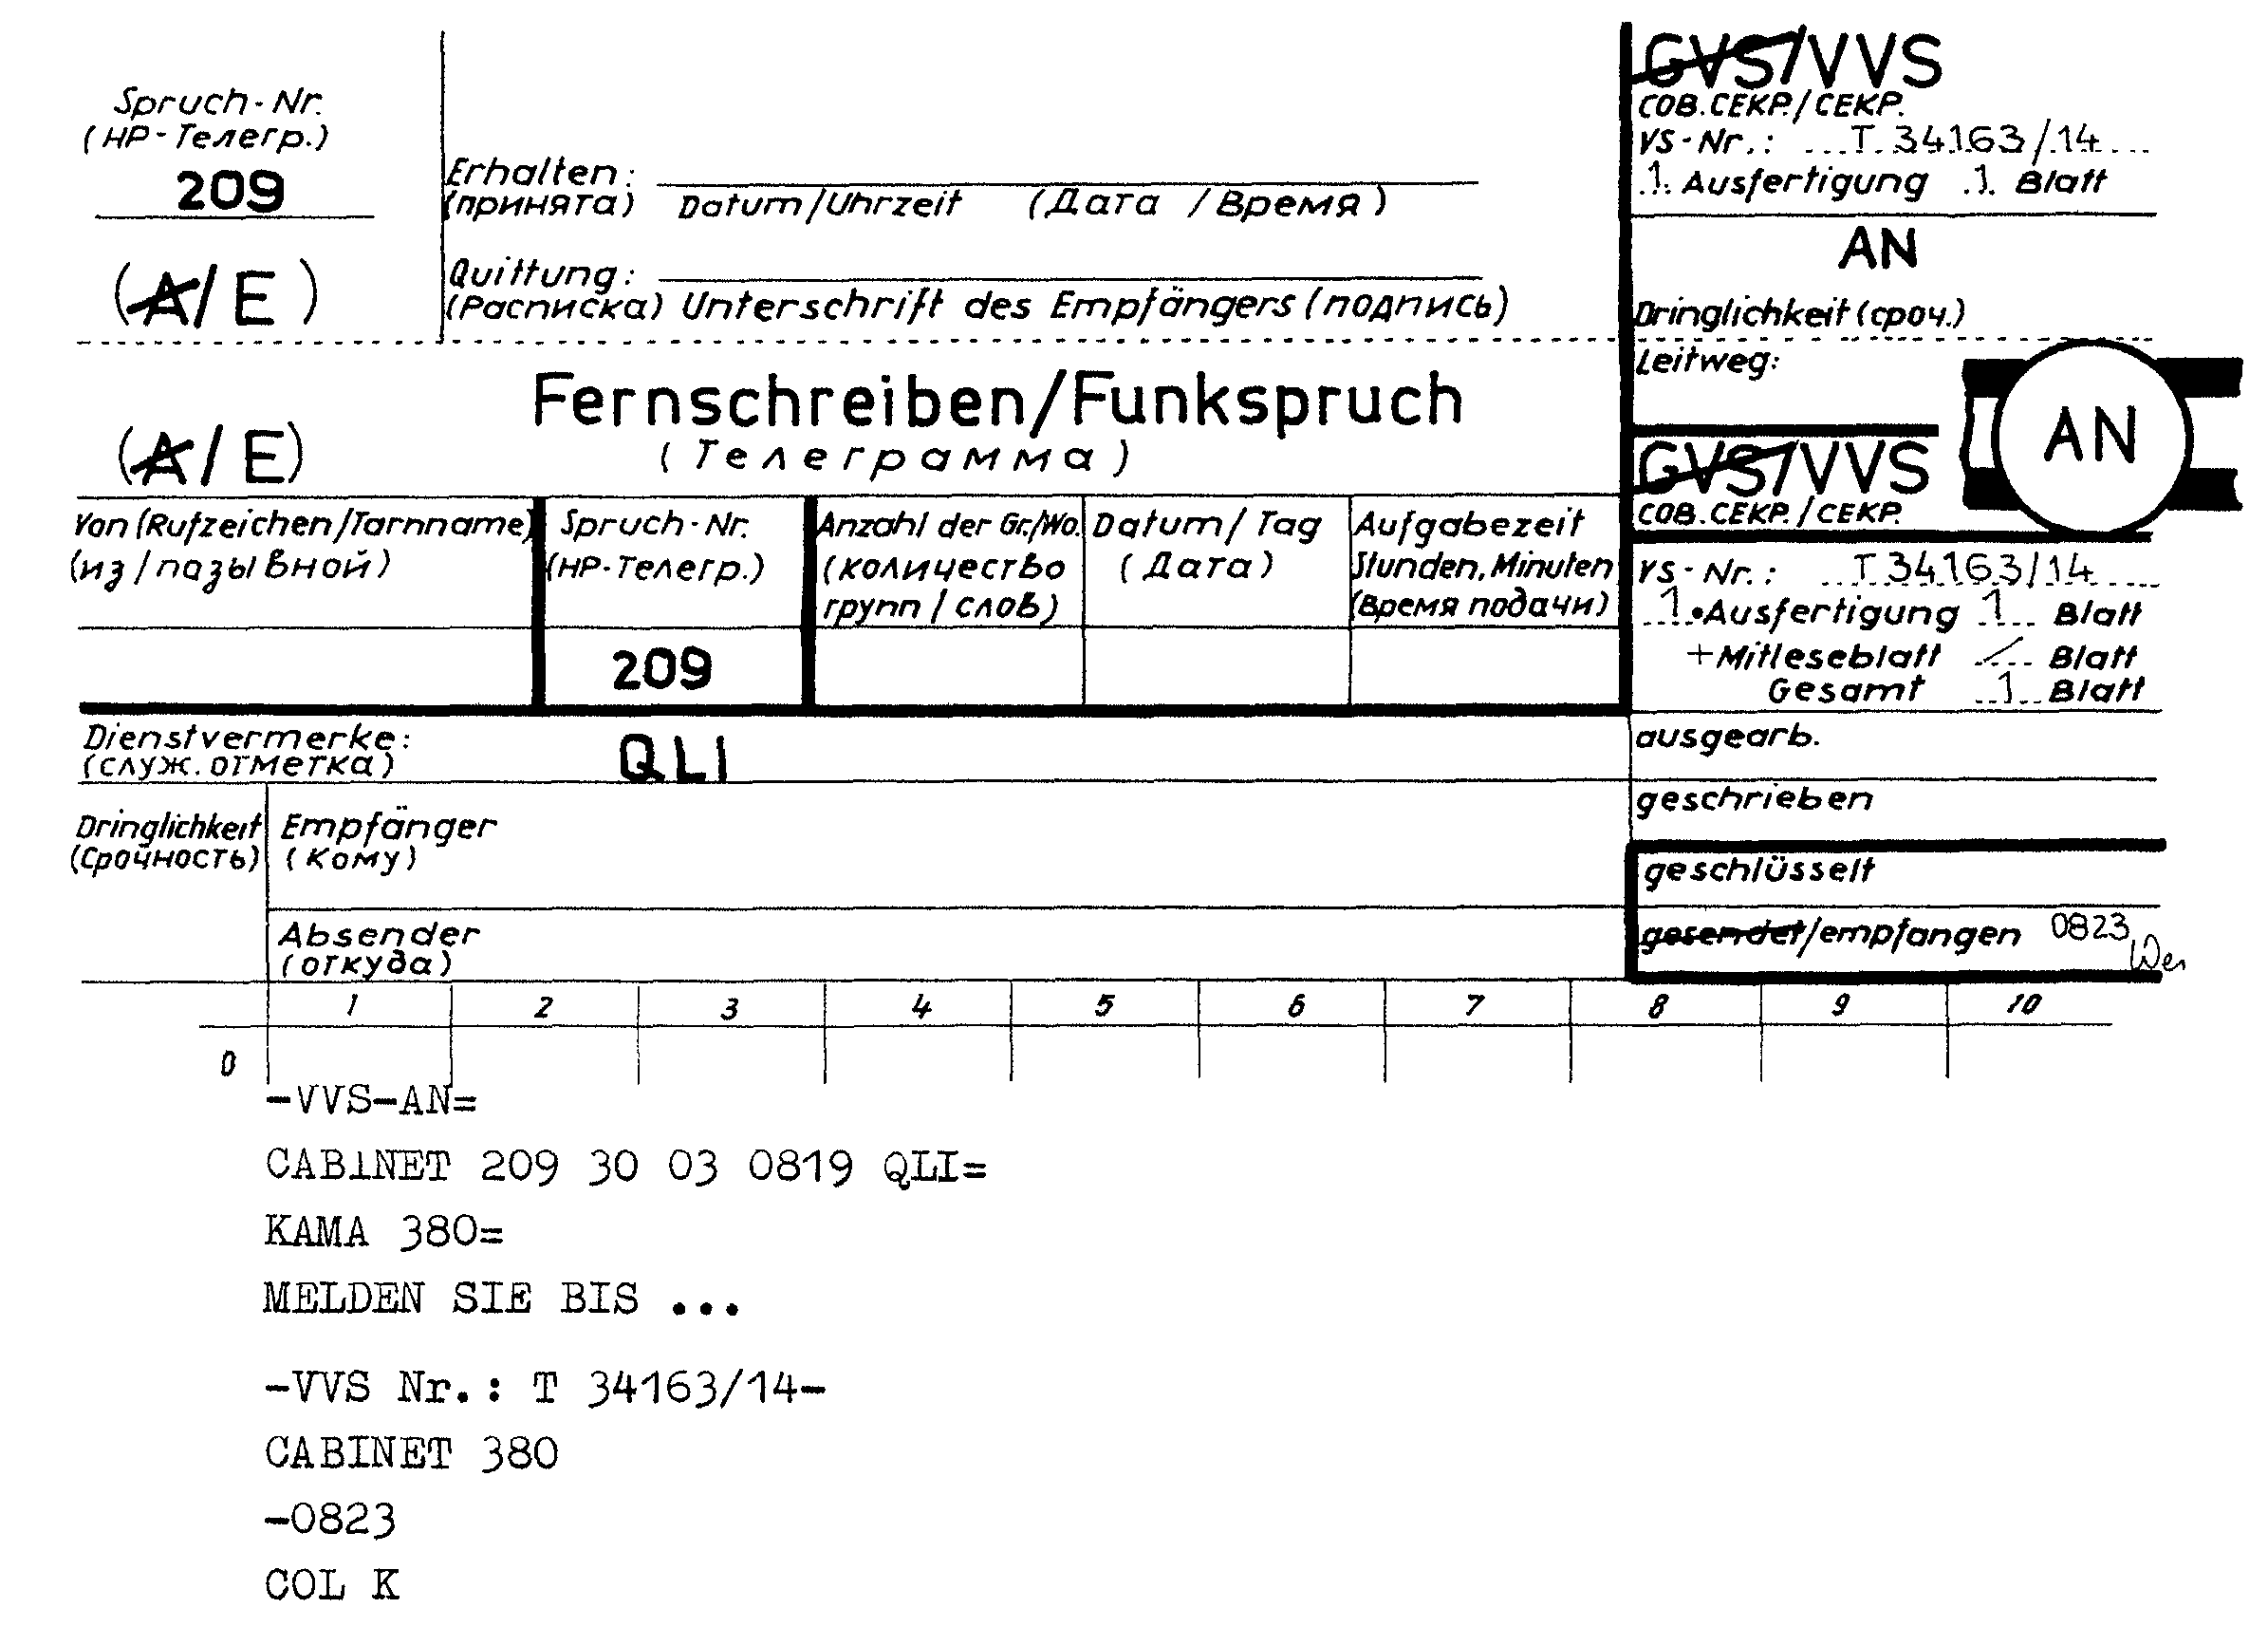 Spruch-Nr.
(НР-Телегр.)
209
(A/E)
Erhalten:
(принята) Datum/Uhrzeit (Дата /Время)
Quittung:
(Расписка) Unterschrift des Empfängers (подпись)
GVS/VVS
СОВ.СЕКР./СЕКР.
VS-Nr.: T 34163/14
1. Ausfertigung 1. Blatt
AN
Dringlichkeit (сроч.)
Leitweg:
AN
(A/E)
Fernschreiben/Funkspruch
(Телеграмма)
GVS/VVS
СОВ.СЕКР./СЕКР.
VS-Nr.: T 34163/14
1. Ausfertigung 1 Blatt
+Mitleseblatt / Blatt
Gesamt 1 Blatt
Von (Rufzeichen/Tarnname)
(из/позывной)
Spruch-Nr.
(НР-Телегр.)
209
Anzahl der Gr./Wo.
(количество
групп/слов)
Datum/Tag
(Дата)
Aufgabezeit
Stunden, Minuten
(Время подачи)
Dienstvermerke: QLI
(служ. отметка)
ausgearb.
geschrieben
Dringlichkeit
(Срочность)
Empfänger
(Кому)
geschlüsselt
Absender
(откуда)
gesendet/empfangen 0823
1 2 3 4 5 6 7 8 9 10
0
-VVS-AN=
CABINET 209 30 03 0819 QLI=
KAMA 380=
MELDEN SIE BIS ...
-VVS Nr.: T 34163/14-
CABINET 380
-0823
COL K